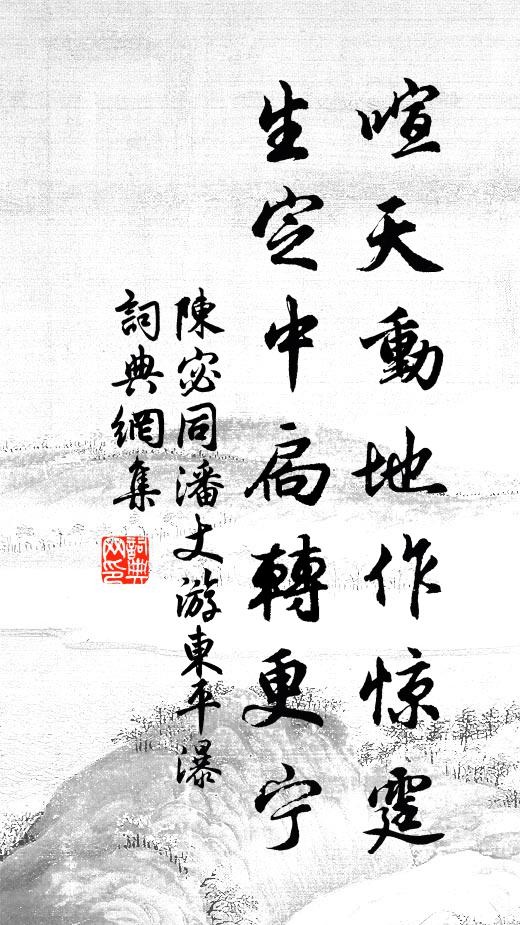 喧天動地作惊霆
生定中扃轉更宁
陳宓同潘丈游東平瀑
詞典網集
詞典网印